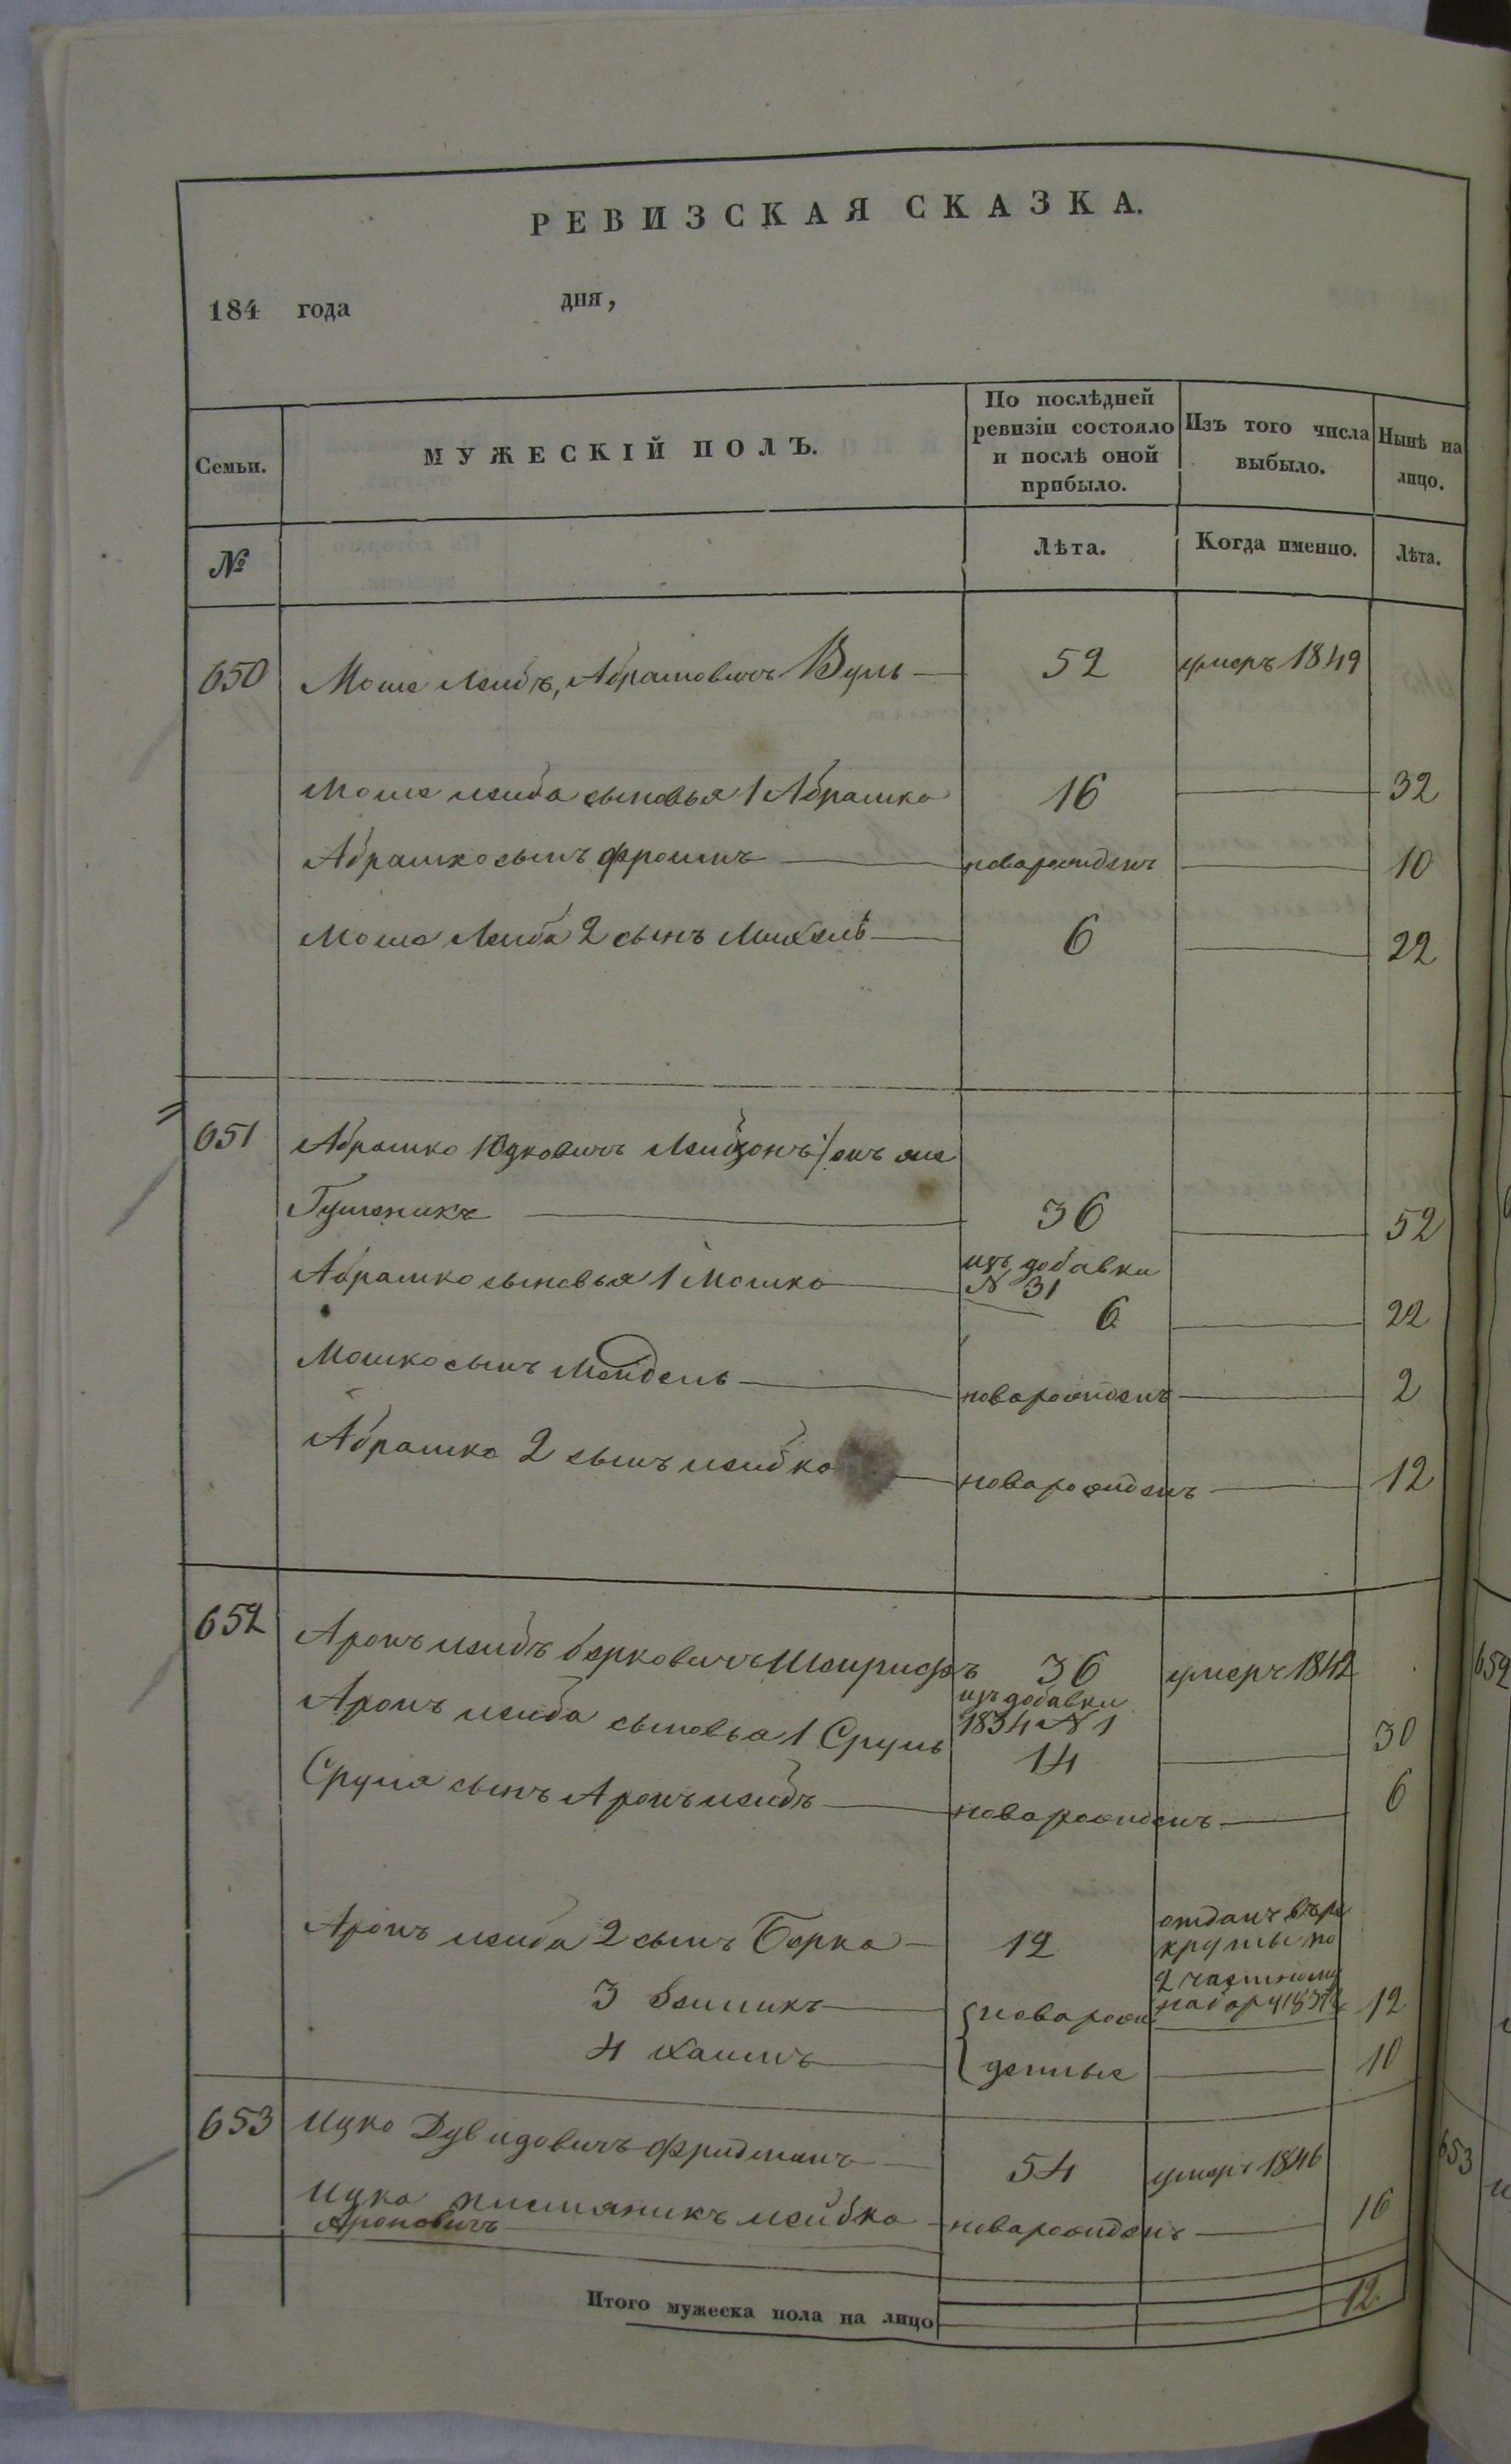 РЕВИЗСКАЯ СКАЗКА.
184 года дня,
Семьи. МУЖЕСКІЙ ПОЛЪ. По послѣдней ревизіи состояло и послѣ оной прибыло. Изъ того числа выбыло. Нынѣ на лицо.
№ Лѣта. Когда именно. Лѣта.
650 Моше Лейбъ, Абрамовичъ Вуль 52 умеръ 1849
Моше лейба сыновья 1 Абрашко 16 32
Абрашко сынъ Фроимъ новорожденъ 10
Моше Лейба 2 сынъ Михель 6 22
651 Абрашко Юдковичъ онъ же
36 52
изъ добавки
Абрашко сыновья 1 Мошко № 31
6 22
Мошко сынъ Мендель новорожденъ 2
Абрашко 2 сынъ лейбко новорожденъ 12
652 Аронъ лейбъ берковичъ 36 умеръ 1842
изъ добавки
Аронъ лейба сыновья 1 Сруль 1834 № 1
14 30
Сруля сынъ Аронъ лейбъ новорожденъ 6
Аронъ лейба 2 сынъ Берко 12 отданъ въ ре
круты по
2 частному
3 новорож набору 12
4 хаимъ денные 10
653 Ицко Дувидовичъ Фридманъ 54 умеръ 1846
Ицка племяникъ лейбко новорожденъ 16
Ароновичъ
Итого мужеска пола на лицо 12